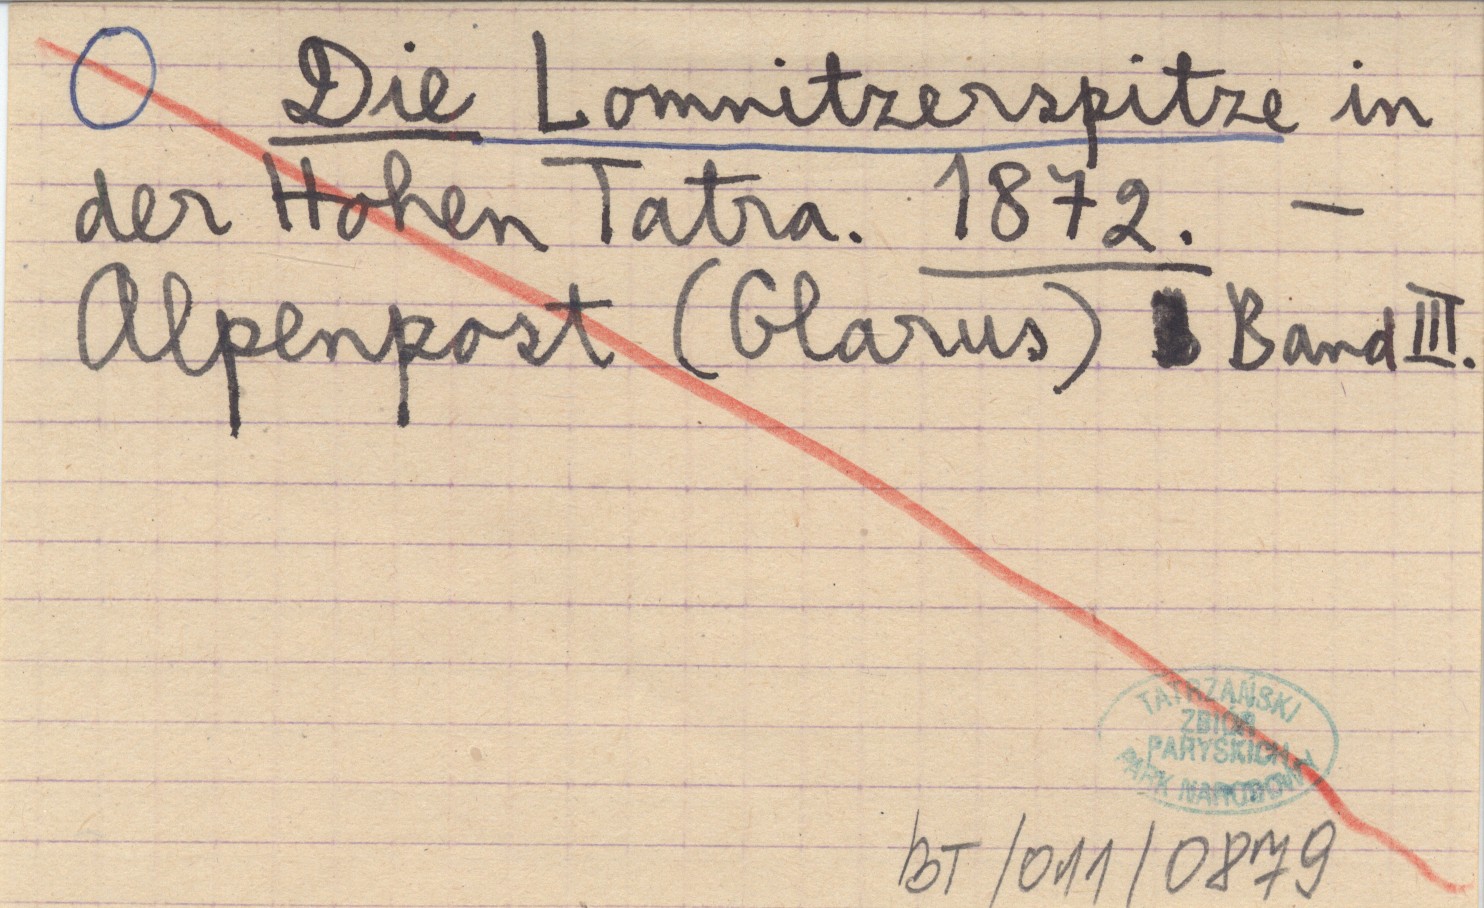 Die Lomnitzerspitze in
der Hohen Tatra. 1872. —
Alpenpost (Glarus) Band III.
TATRZAŃSKI
ZBIÓR
PARYSKICH
PARK NARODOWY
BT/011/0879